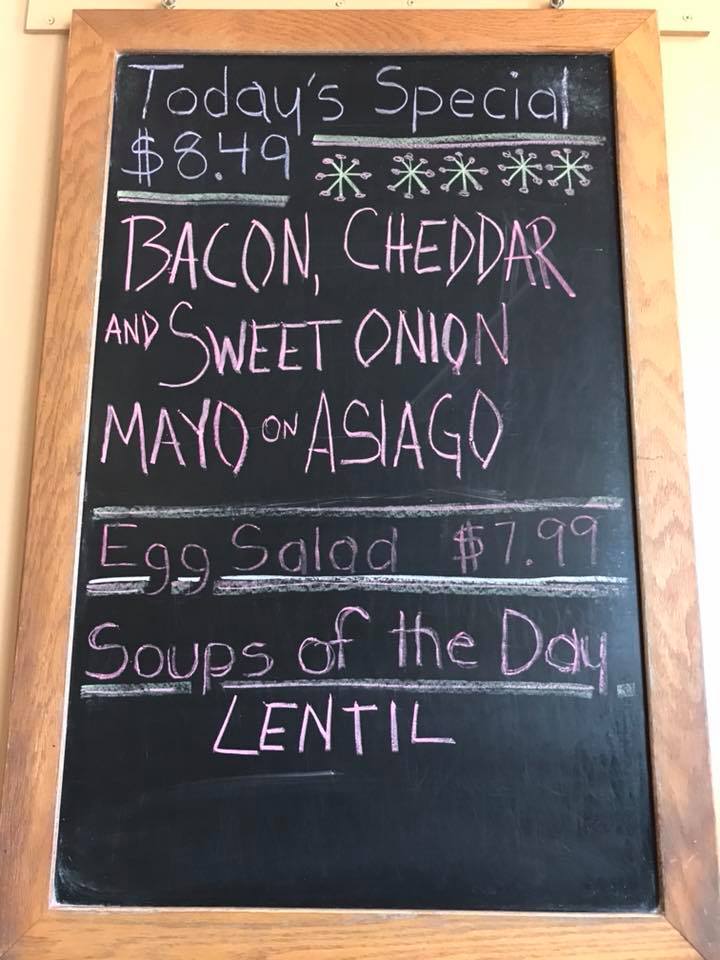 Today's Special
$8.49
BACON, CHEDDAR
AND SWEET ONION
MAYO ON ASIAGO
Egg Salad $7.99
Soups of the Day
LENTIL